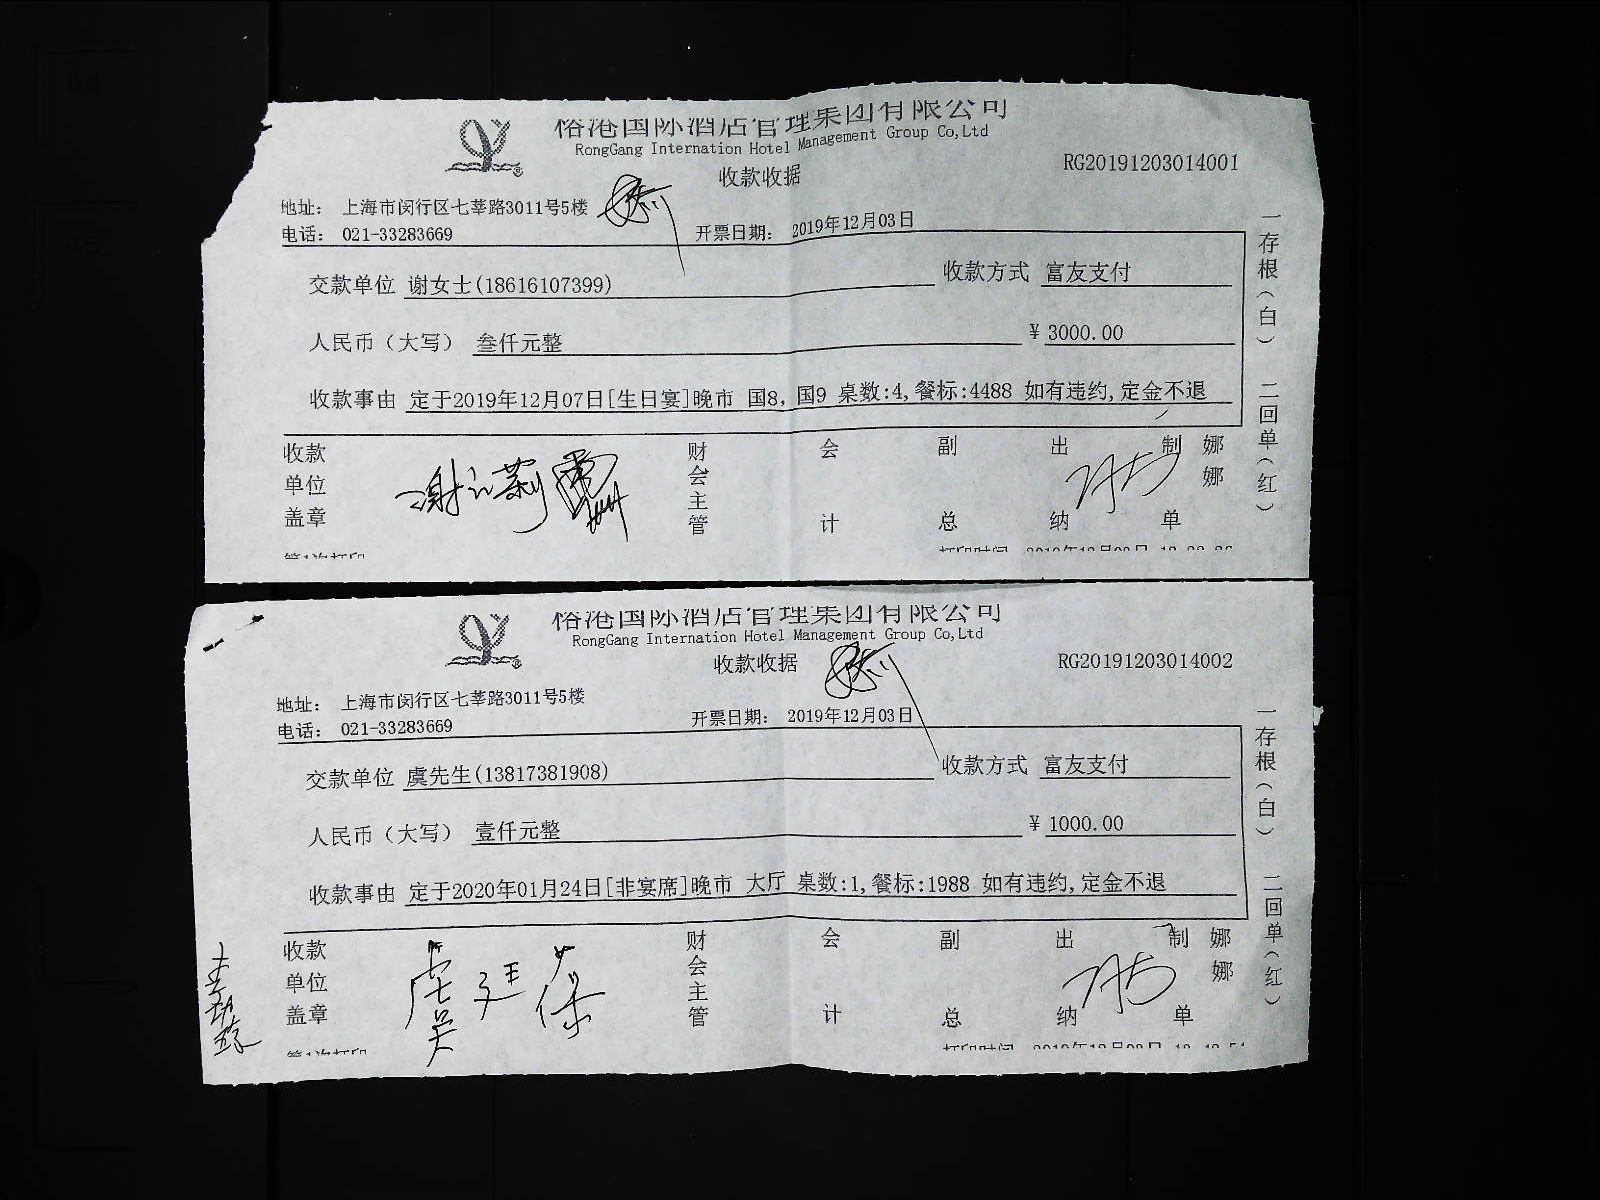 榕港国际酒店管理集团有限公司
RongGang Internation Hotel Management Group Co,Ltd
收款收据
RG20191203014001
地址： 上海市闵行区七莘路3011号5楼
电话： 021-33283669
开票日期： 2019年12月03日
交款单位 谢女士(18616107399)
收款方式 富友支付
人民币（大写） 叁仟元整
¥ 3000.00
收款事由 定于2019年12月07日[生日宴]晚市 国8，国9 桌数:4,餐标:4488 如有违约,定金不退
收款单位盖章
财会主管
会计
副总
出纳
制单
娜娜
一存根（白） 二回单（红）
第1次打印
榕港国际酒店管理集团有限公司
RongGang Internation Hotel Management Group Co,Ltd
收款收据
RG20191203014002
地址： 上海市闵行区七莘路3011号5楼
电话： 021-33283669
开票日期： 2019年12月03日
交款单位 虞先生(13817381908)
收款方式 富友支付
人民币（大写） 壹仟元整
¥ 1000.00
收款事由 定于2020年01月24日[非宴席]晚市 大厅 桌数:1,餐标:1988 如有违约,定金不退
收款单位盖章
虞廷葆
财会主管
会计
副总
出纳
制单
娜娜
一存根（白） 二回单（红）
第1次打印